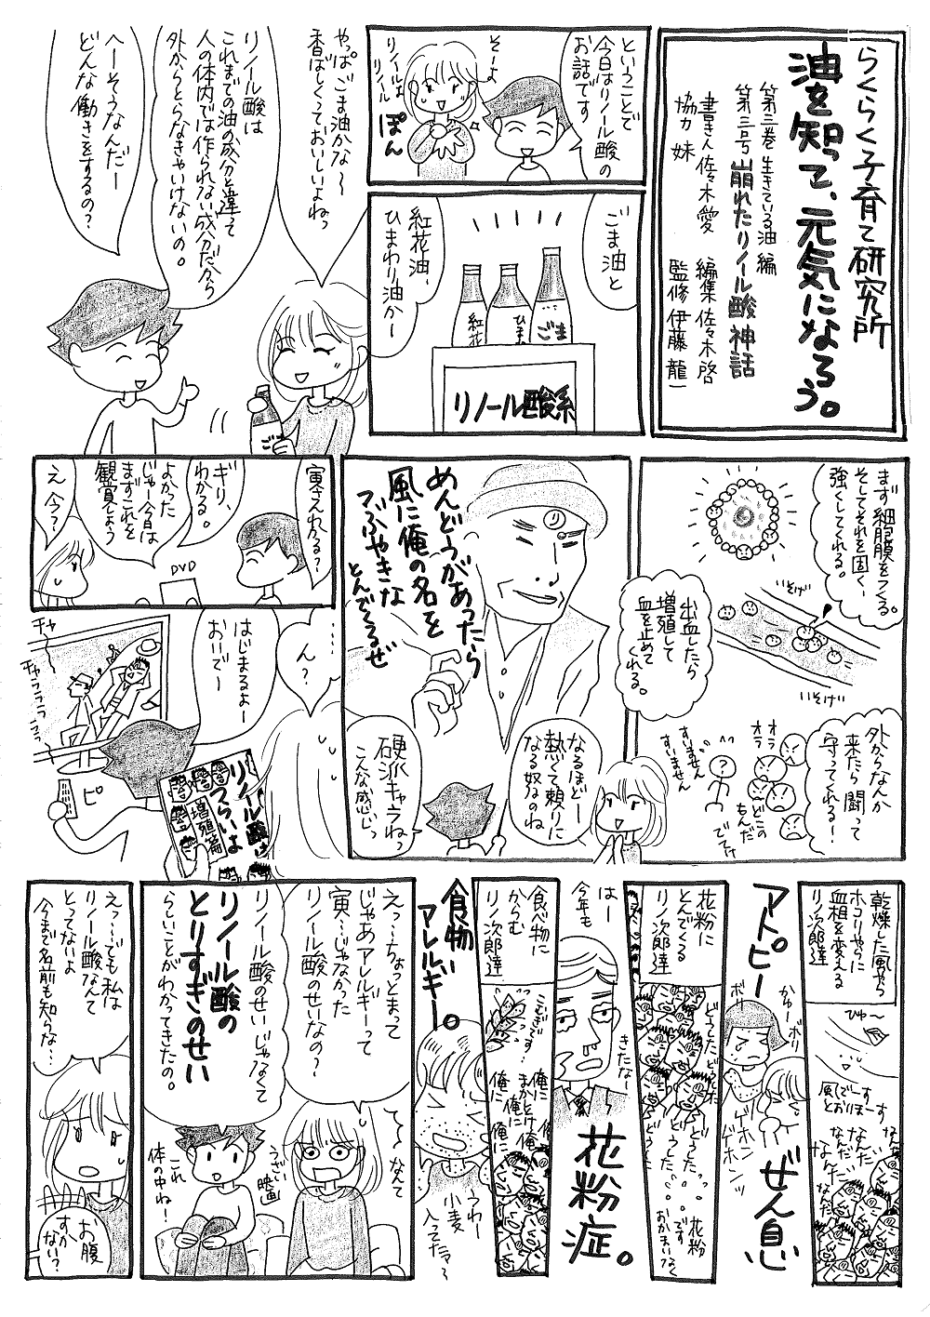 らくらく子育て研究所
油を知って、元気になろう。
第三巻 生きている油 編
第三号 崩れたリノール酸 神話
書き人 佐々木愛 編集 佐々木啓
協力 妹 監修 伊藤 龍一
ということで
今日はリノール酸の
お話です
そーよ
リノールよ
リノール
ぽん
ごま油と
紅花油、
ひまわり油かー
ごま
ひま
紅花
リノール酸系
やっぱごま油かな〜
香ばしくっておいしいよねっ
リノール酸は
これまでの油の成分と違って
人の体内では作られない成分だから
外からとらなきゃいけないの。
へーそうなんだー
どんな働きをするの?
ごま
まず細胞膜をつくる。
そしてそれを固く
強くしてくれる。
いそげ
いそげ
出血したら
増殖して
血を止めて
くれる。
外からなんか
来たら闘って
守ってくれる!
オラ
オラ
どこの
もんだ
でてけ
すいません
すいません
リ
めんどうがあったら
風に俺の名を
つぶやきな
とんでくるぜ
なるほどー
熱くて頼りに
なる奴なのね
硬派キャラねっ
こんな感じっ
寅さんわかる?
ギリ、
わかる。
よかった
じゃー今日は
まずこれを
観賞しよう
え 今?
DVD
はじまるよー
おいでー
……
ん?
チャ
チャラララ
ラっ
ピ
リノール酸は
つらいよ
増殖篇
乾燥した風やら
ホコリやらに
血相を変える
リノ次郎達
ひゅ〜
風でーす
とおりまーす
なんだ
なんだ
アトピー
ぜん息
かゆー
ボリ
ボリ
ゲホン
ゲホン
花粉に
とんでくる
リノ次郎達
どうしたどうした
どうした
花粉
です
おかまいなく
はー
今年も
きたなー
花粉症。
食べ物に
からむ
リノ次郎達
こむぎです…
俺に
まかせとけ
俺に
俺に
俺に
食物
アレルギー。
うわー
小麦
入ってたァ〜
えっ…ちょっとまって
じゃあアレルギーって
寅…じゃなかった
リノール酸のせいなの?
リノール酸のせいじゃなくて
リノール酸の
とりすぎのせい
らしいことがわかってきたの。
なんて
て〜
うざい
映画
これ
体の中ね!
えっ…でも私は
リノール酸なんて
とってないよ
今まで名前も知らな…
お腹
すか
ない?